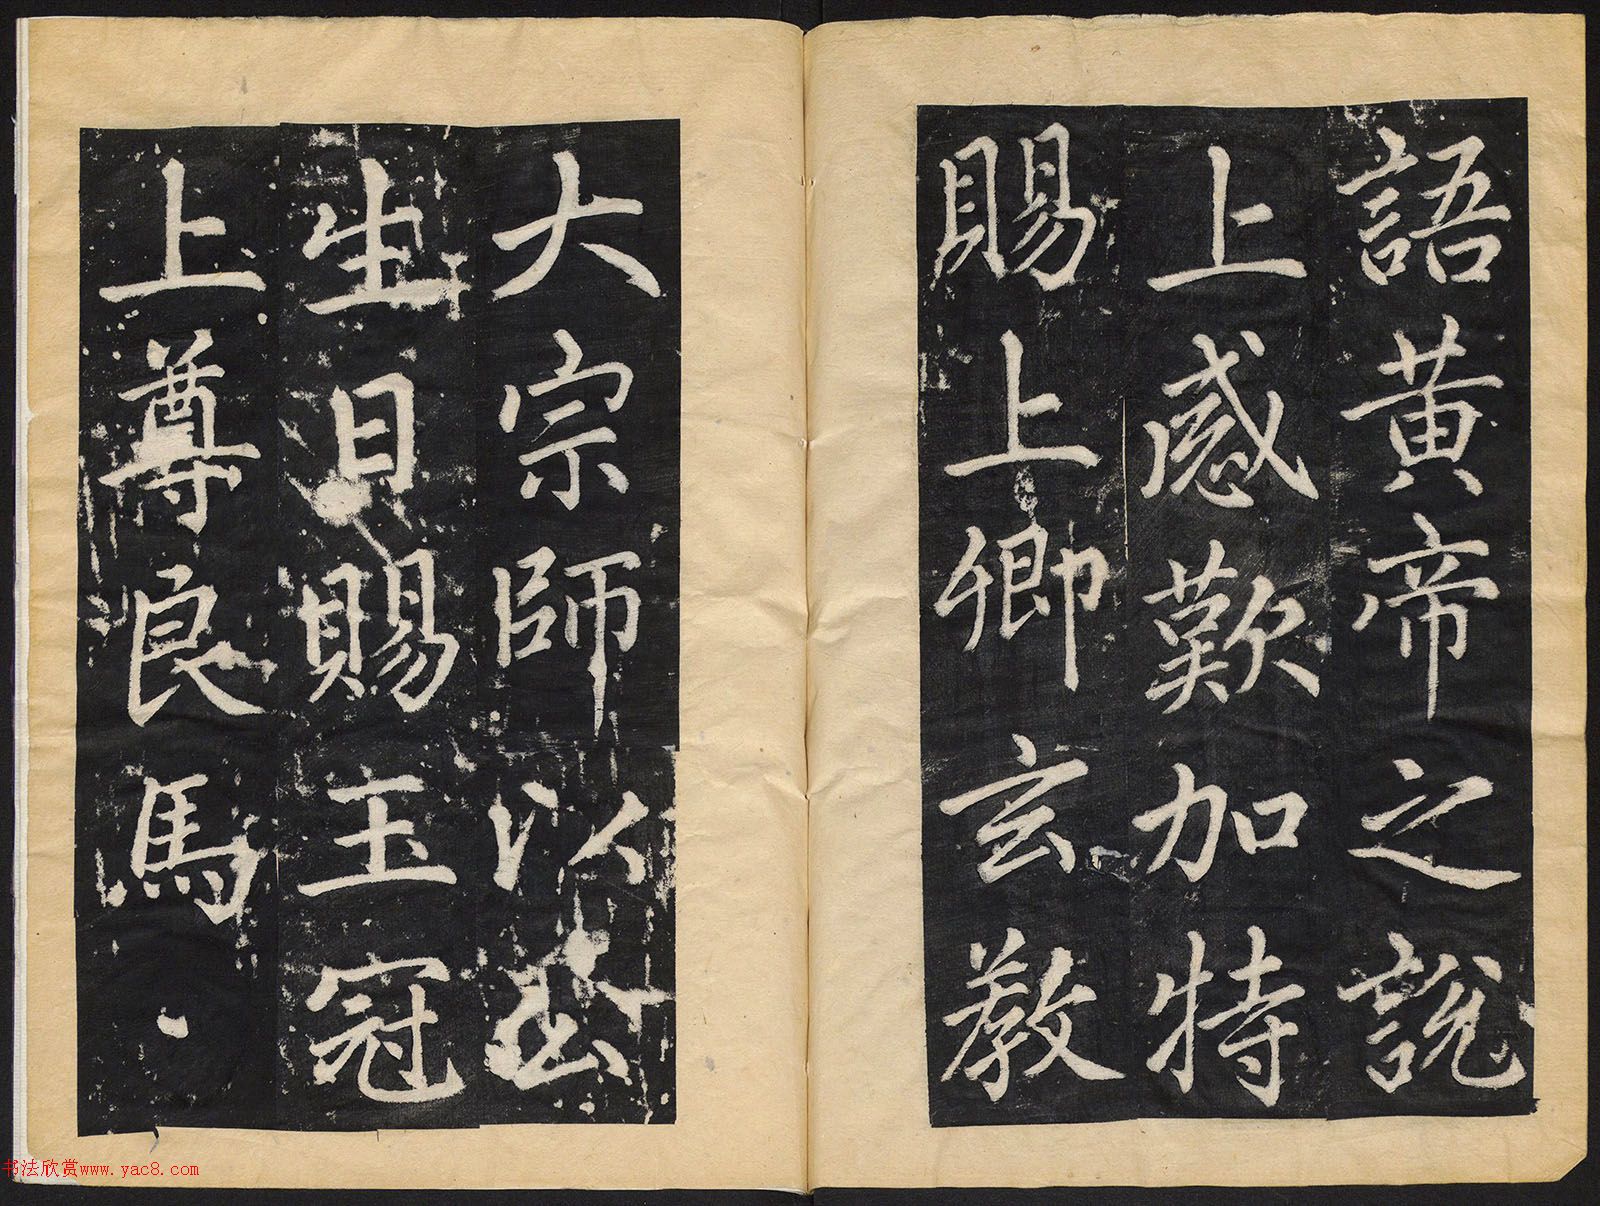 語黃帝之說
上感歎加特
賜上卿玄教
大宗師以公
生日賜玉冠
上尊良馬
书法欣赏www.yac8.com